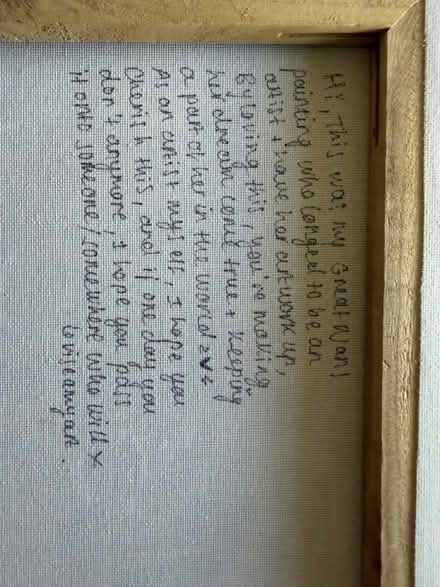 Hi, This was my Great Nan!
painting who longed to be an
artist + have her artwork up,
By loving this, you're making
her dream come true + keeping
a part of her in the world
As an artist myself, I hope you
cherish this, and if one day you
don't anymore, I hope you pass
it onto someone/somewhere who will x